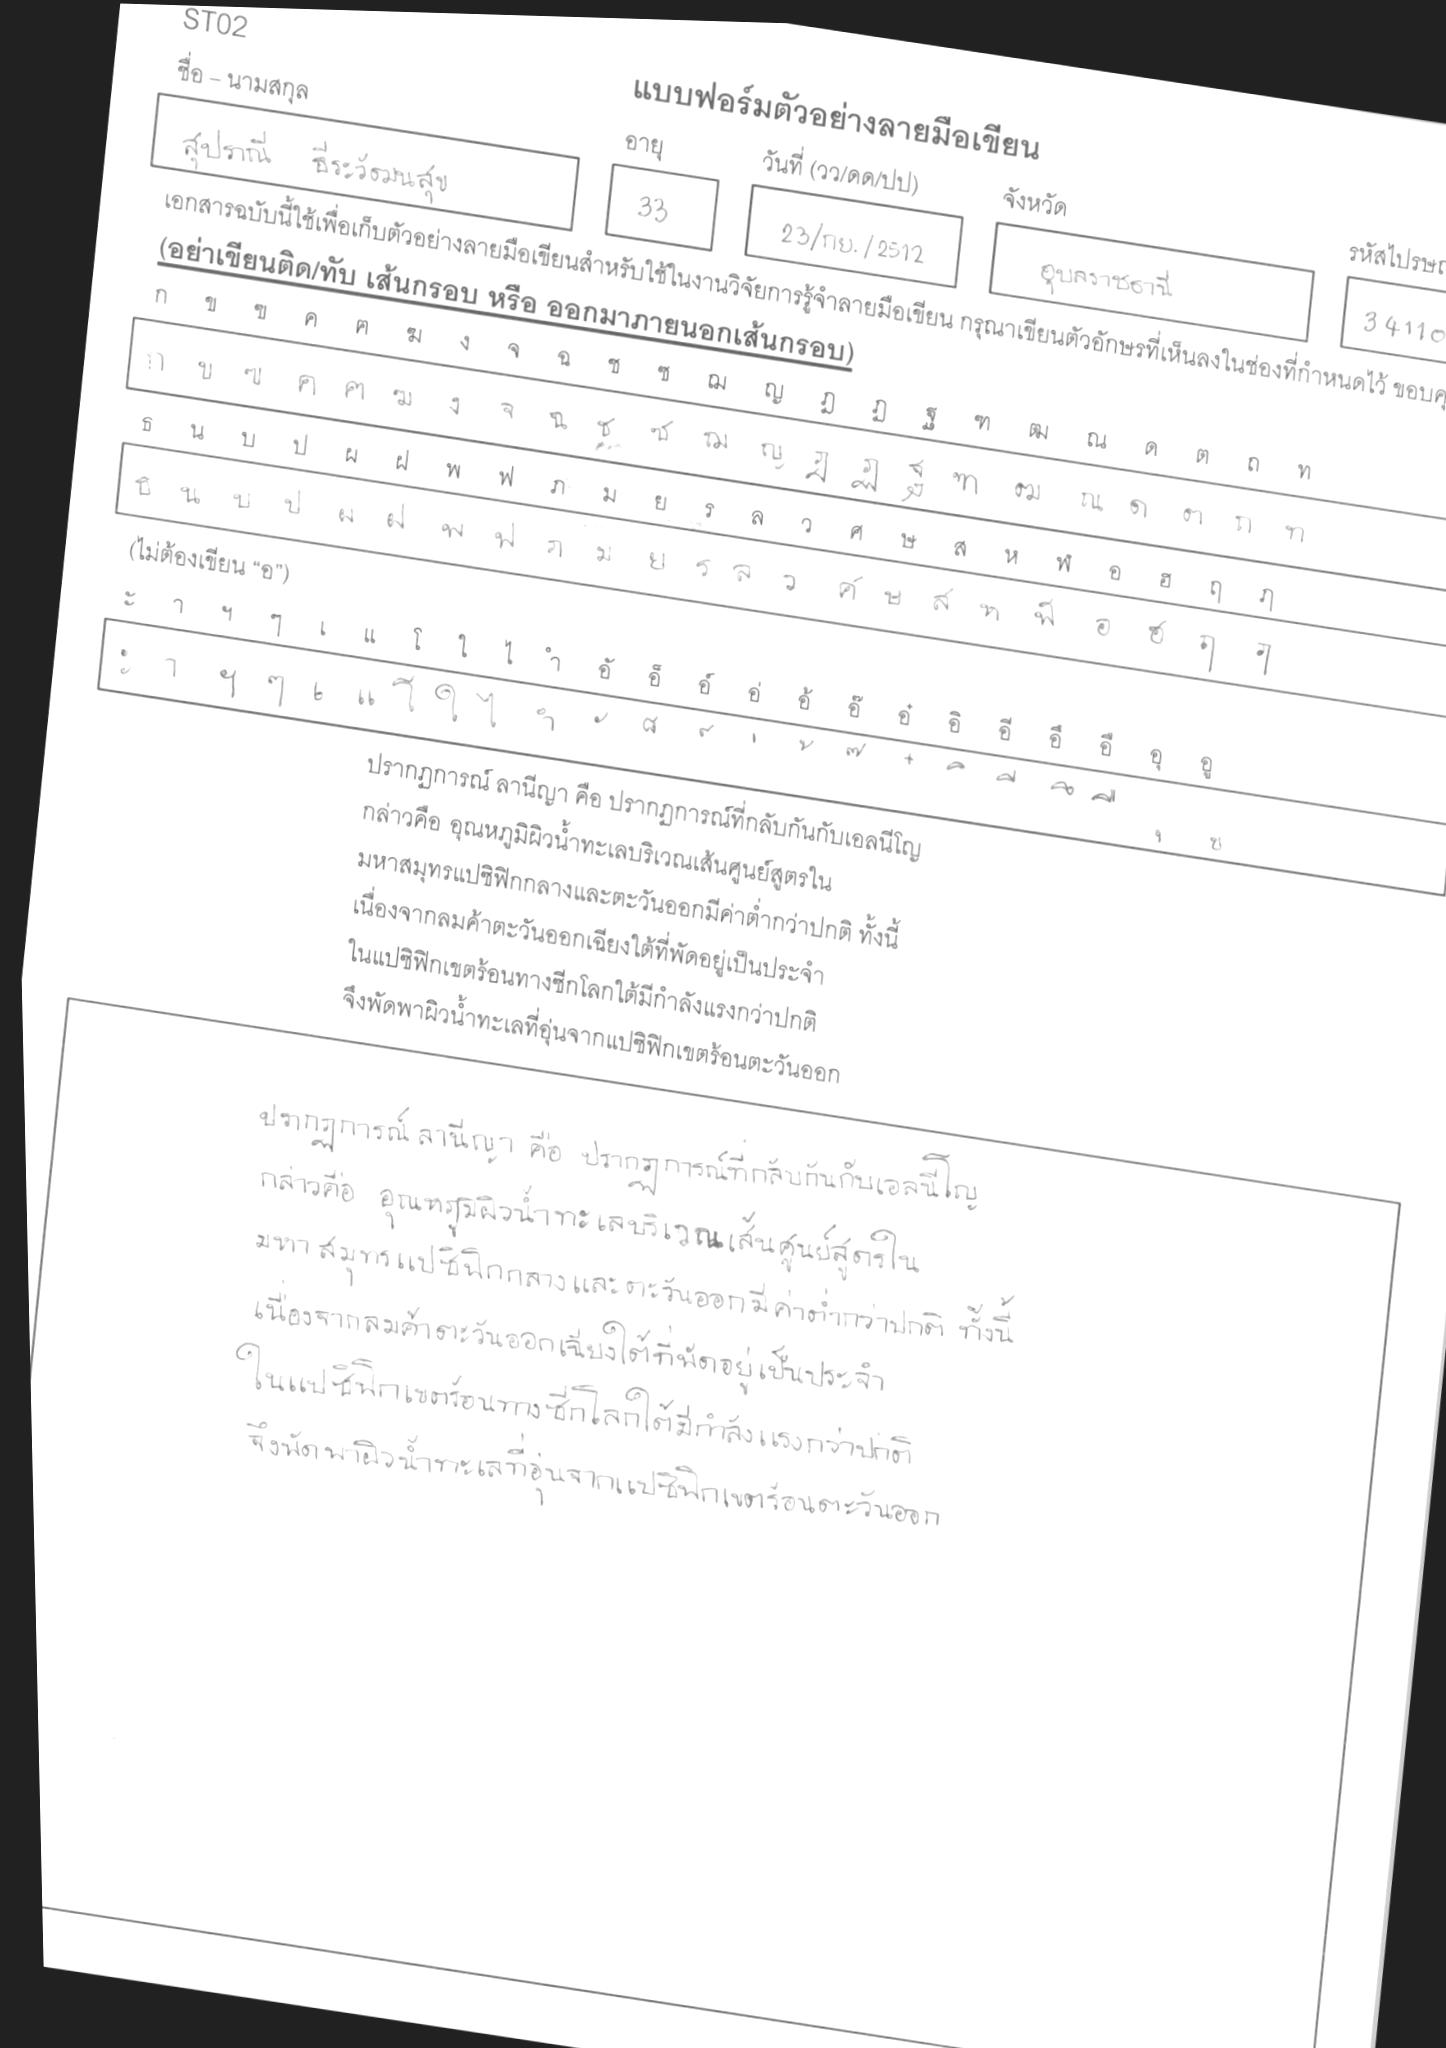 ST02
แบบฟอร์มตัวอย่างลายมือเขียน
ชื่อ – นามสกุล อายุ วันที่ (วว/ดด/ปป) จังหวัด
สุปราณี ธีระวัฒนสุข 33 23/กย./2512 อุบลราชธานี 34110
เอกสารฉบับนี้ใช้เพื่อเก็บตัวอย่างลายมือเขียนสำหรับใช้ในงานวิจัยการรู้จำลายมือเขียน กรุณาเขียนตัวอักษรที่เห็นลงในช่องที่กำหนดไว้
(อย่าเขียนติด/ทับ เส้นกรอบ หรือ ออกมาภายนอกเส้นกรอบ)
ก ข ฃ ค ฅ ฆ ง จ ฉ ช ซ ฌ ญ ฎ ฏ ฐ ฑ ฒ ณ ด ต ถ ท
ก ข ฃ ค ฅ ฆ ง จ ฉ ช ซ ฌ ญ ฎ ฏ ฐ ฑ ฒ ณ ด ต ถ ท
ธ น บ ป ผ ฝ พ ฟ ภ ม ย ร ล ว ศ ษ ส ห ฬ อ ฮ ฤ ฦ
ธ น บ ป ผ ฝ พ ฟ ภ ม ย ร ล ว ศ ษ ส ห ฬ อ ฮ ฤ ฦ
(ไม่ต้องเขียน “อ”)
ะ า ฯ ๆ เ แ โ ใ ไ ำ อั อ็ อ์ อ่ อ้ อ๊ อ๋ อิ อี อึ อื อุ อู
ะ า ฯ ๆ เ แ โ ใ ไ ำ ั ็ ์ ่ ้ ๊ ๋ ิ ี ึ ื ุ ู
ปรากฏการณ์ ลานีญา คือ ปรากฏการณ์ที่กลับกันกับเอลนีโญ
กล่าวคือ อุณหภูมิผิวน้ำทะเลบริเวณเส้นศูนย์สูตรใน
มหาสมุทรแปซิฟิกกลางและตะวันออกมีค่าต่ำกว่าปกติ ทั้งนี้
เนื่องจากลมค้าตะวันออกเฉียงใต้ที่พัดอยู่เป็นประจำ
ในแปซิฟิกเขตร้อนทางซีกโลกใต้มีกำลังแรงกว่าปกติ
จึงพัดพาผิวน้ำทะเลที่อุ่นจากแปซิฟิกเขตร้อนตะวันออก
ปรากฏการณ์ ลานีญา คือ ปรากฏการณ์ที่กลับกันกับเอลนีโญ
กล่าวคือ อุณหภูมิผิวน้ำทะเลบริเวณเส้นศูนย์สูตรใน
มหาสมุทรแปซิฟิกกลางและตะวันออกมีค่าต่ำกว่าปกติ ทั้งนี้
เนื่องจากลมค้าตะวันออกเฉียงใต้ที่พัดอยู่เป็นประจำ
ในแปซิฟิกเขตร้อนทางซีกโลกใต้มีกำลังแรงกว่าปกติ
จึงพัดพาผิวน้ำทะเลที่อุ่นจากแปซิฟิกเขตร้อนตะวันออก